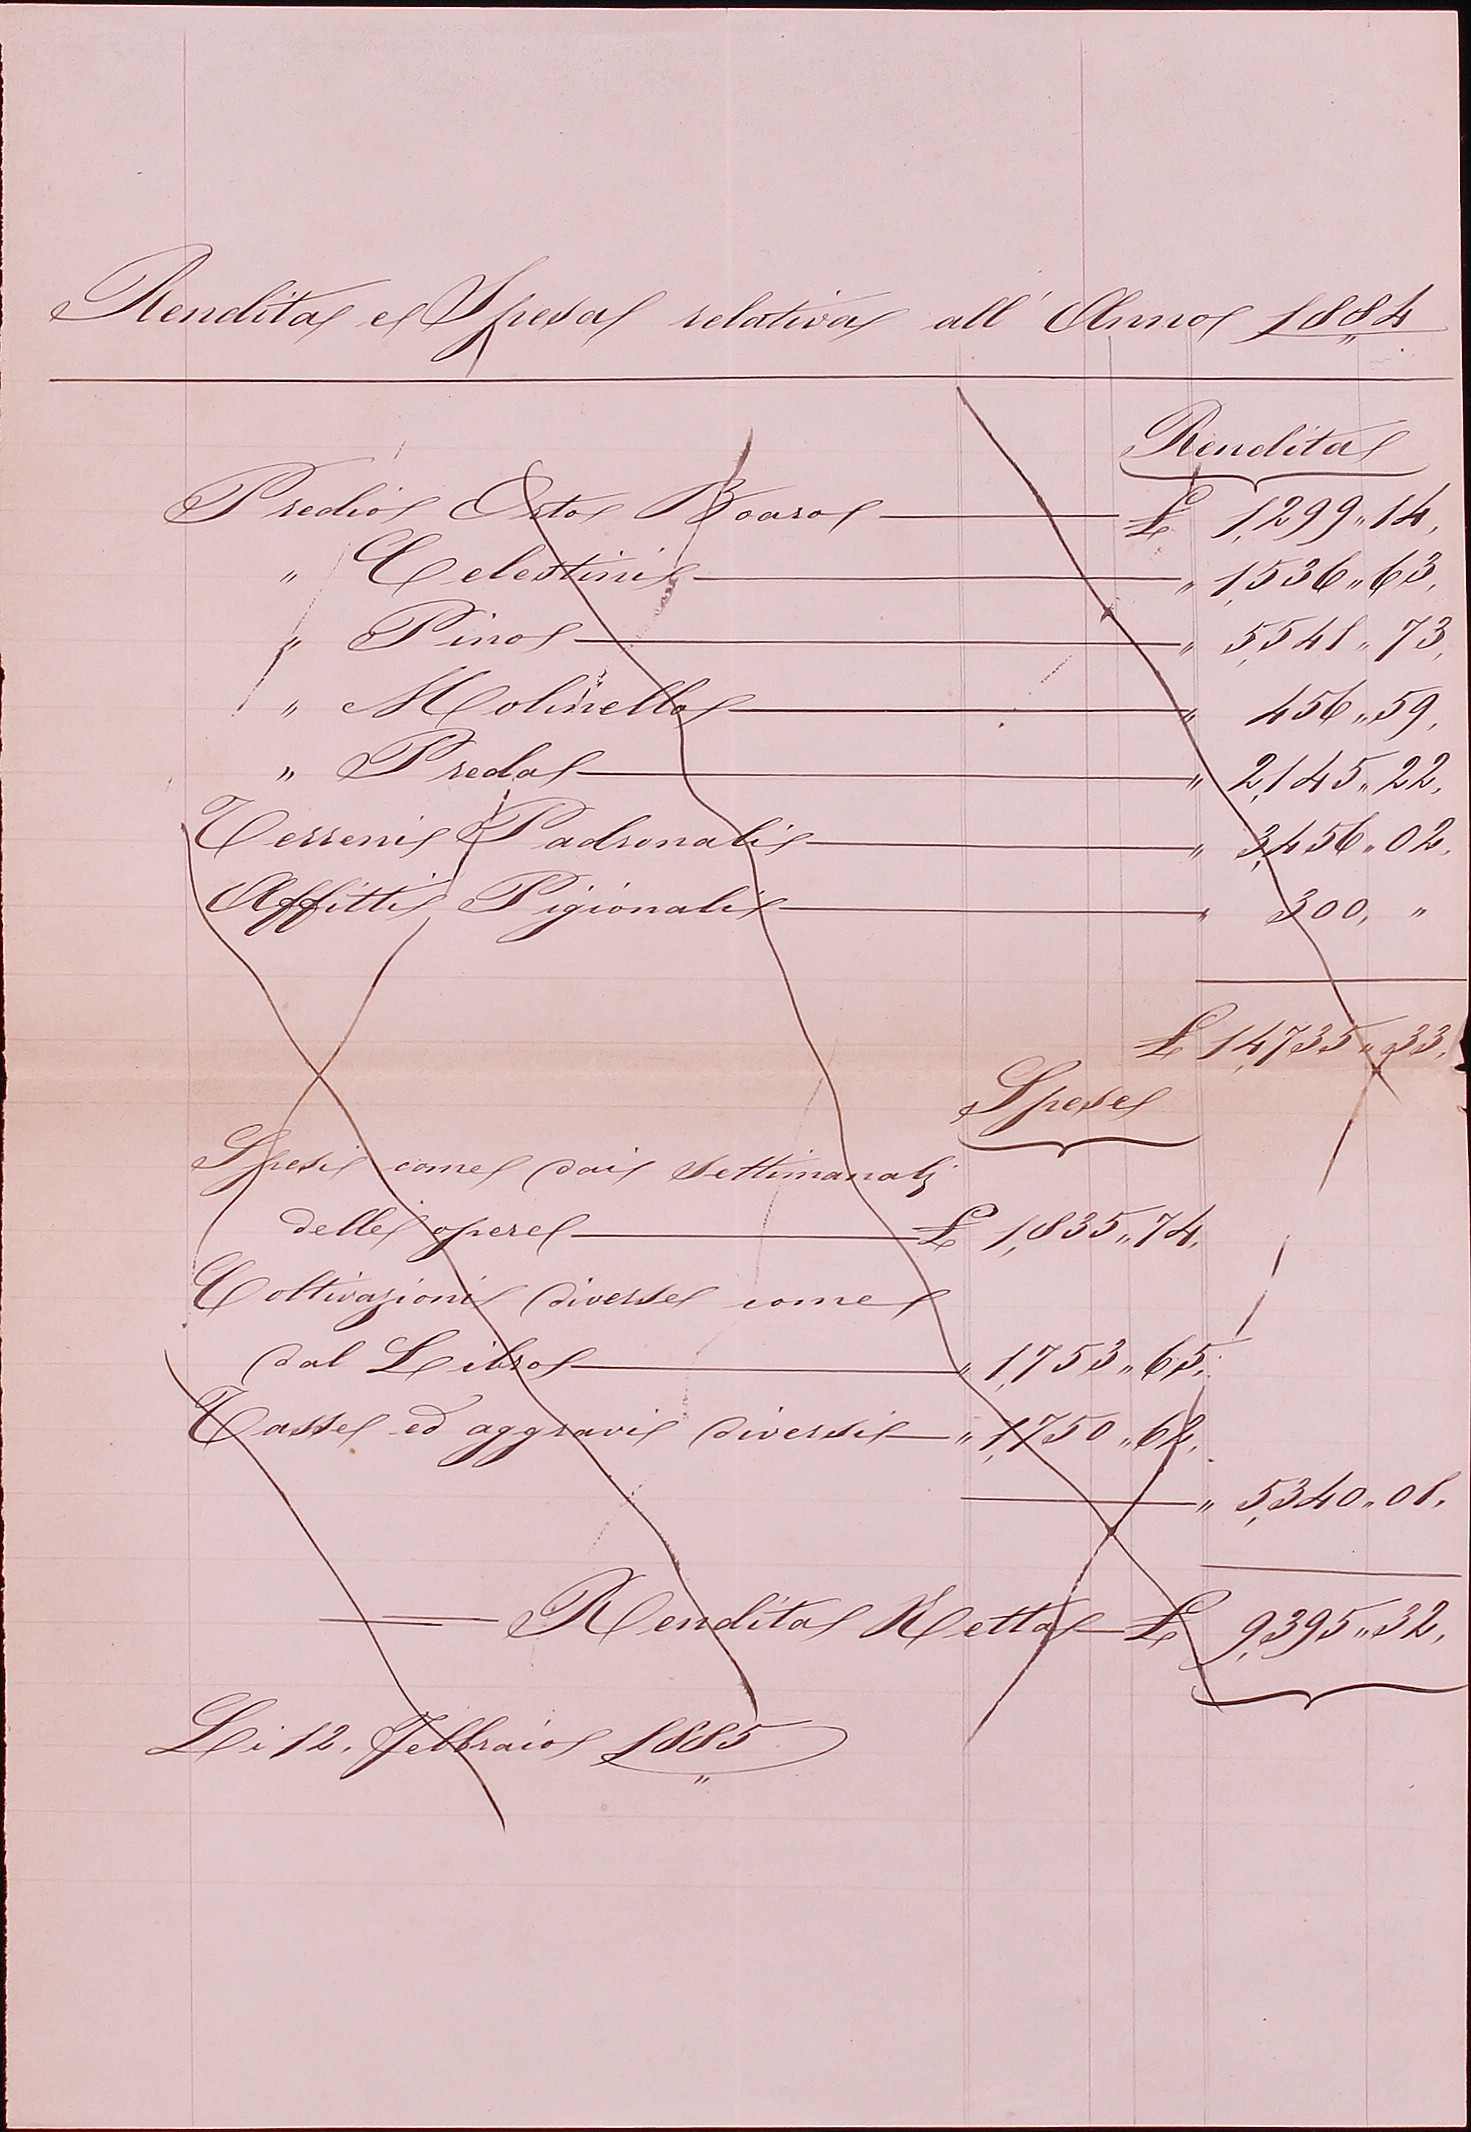 Rendita e Spesa relativa all' Anno 1884
Rendita
Predio Orto Boaro £ 1,299 „ 14,
„ Celestini „ 1,536 „ 63,
„ Pino „ 5,541 „ 73,
„ Molinello „ 456 „ 59,
„ Preda „ 2,145 „ 22,
Terreni Padronali „ 3,456 „ 02,
Affitti Pigionali „ 300, „
£ 14,735 „ 33,
Spese
Spesi come dai settimanali
delle opere £ 1,835 „ 74,
Coltivazioni diverse come
dal Libro „ 1,753 „ 65,
Tasse ed aggravi diversi „ 1,750 „ 62,
„ 5,340 „ 01,
Rendita Netta £ 9,395 „ 32,
Li 12. Febbraio 1885